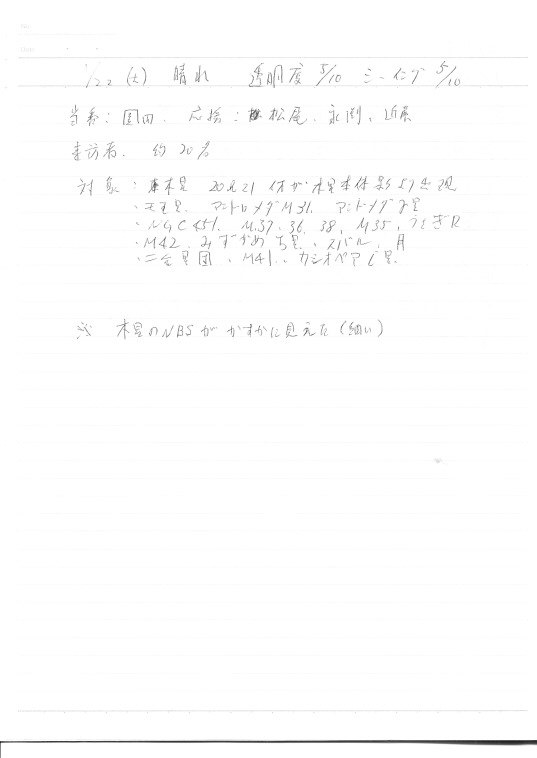 1/22 (土) 晴れ 透明度 5/10 シーイング 5/10
当番: 園田、 応援: 松尾、永渕、近藤
来訪者、 約20名
対象: 木星 20h21 イオが木星本体影より出現
・天王星、アンドロメダM31、アンドロメダγ星
・NGC457、M37、36、38、M35、うさぎR
・M42、みずがめ ζ星、スバル、月
・二重星団、M41、カシオペア ι星
※ 木星のNBSがかすかに見えた(細い)